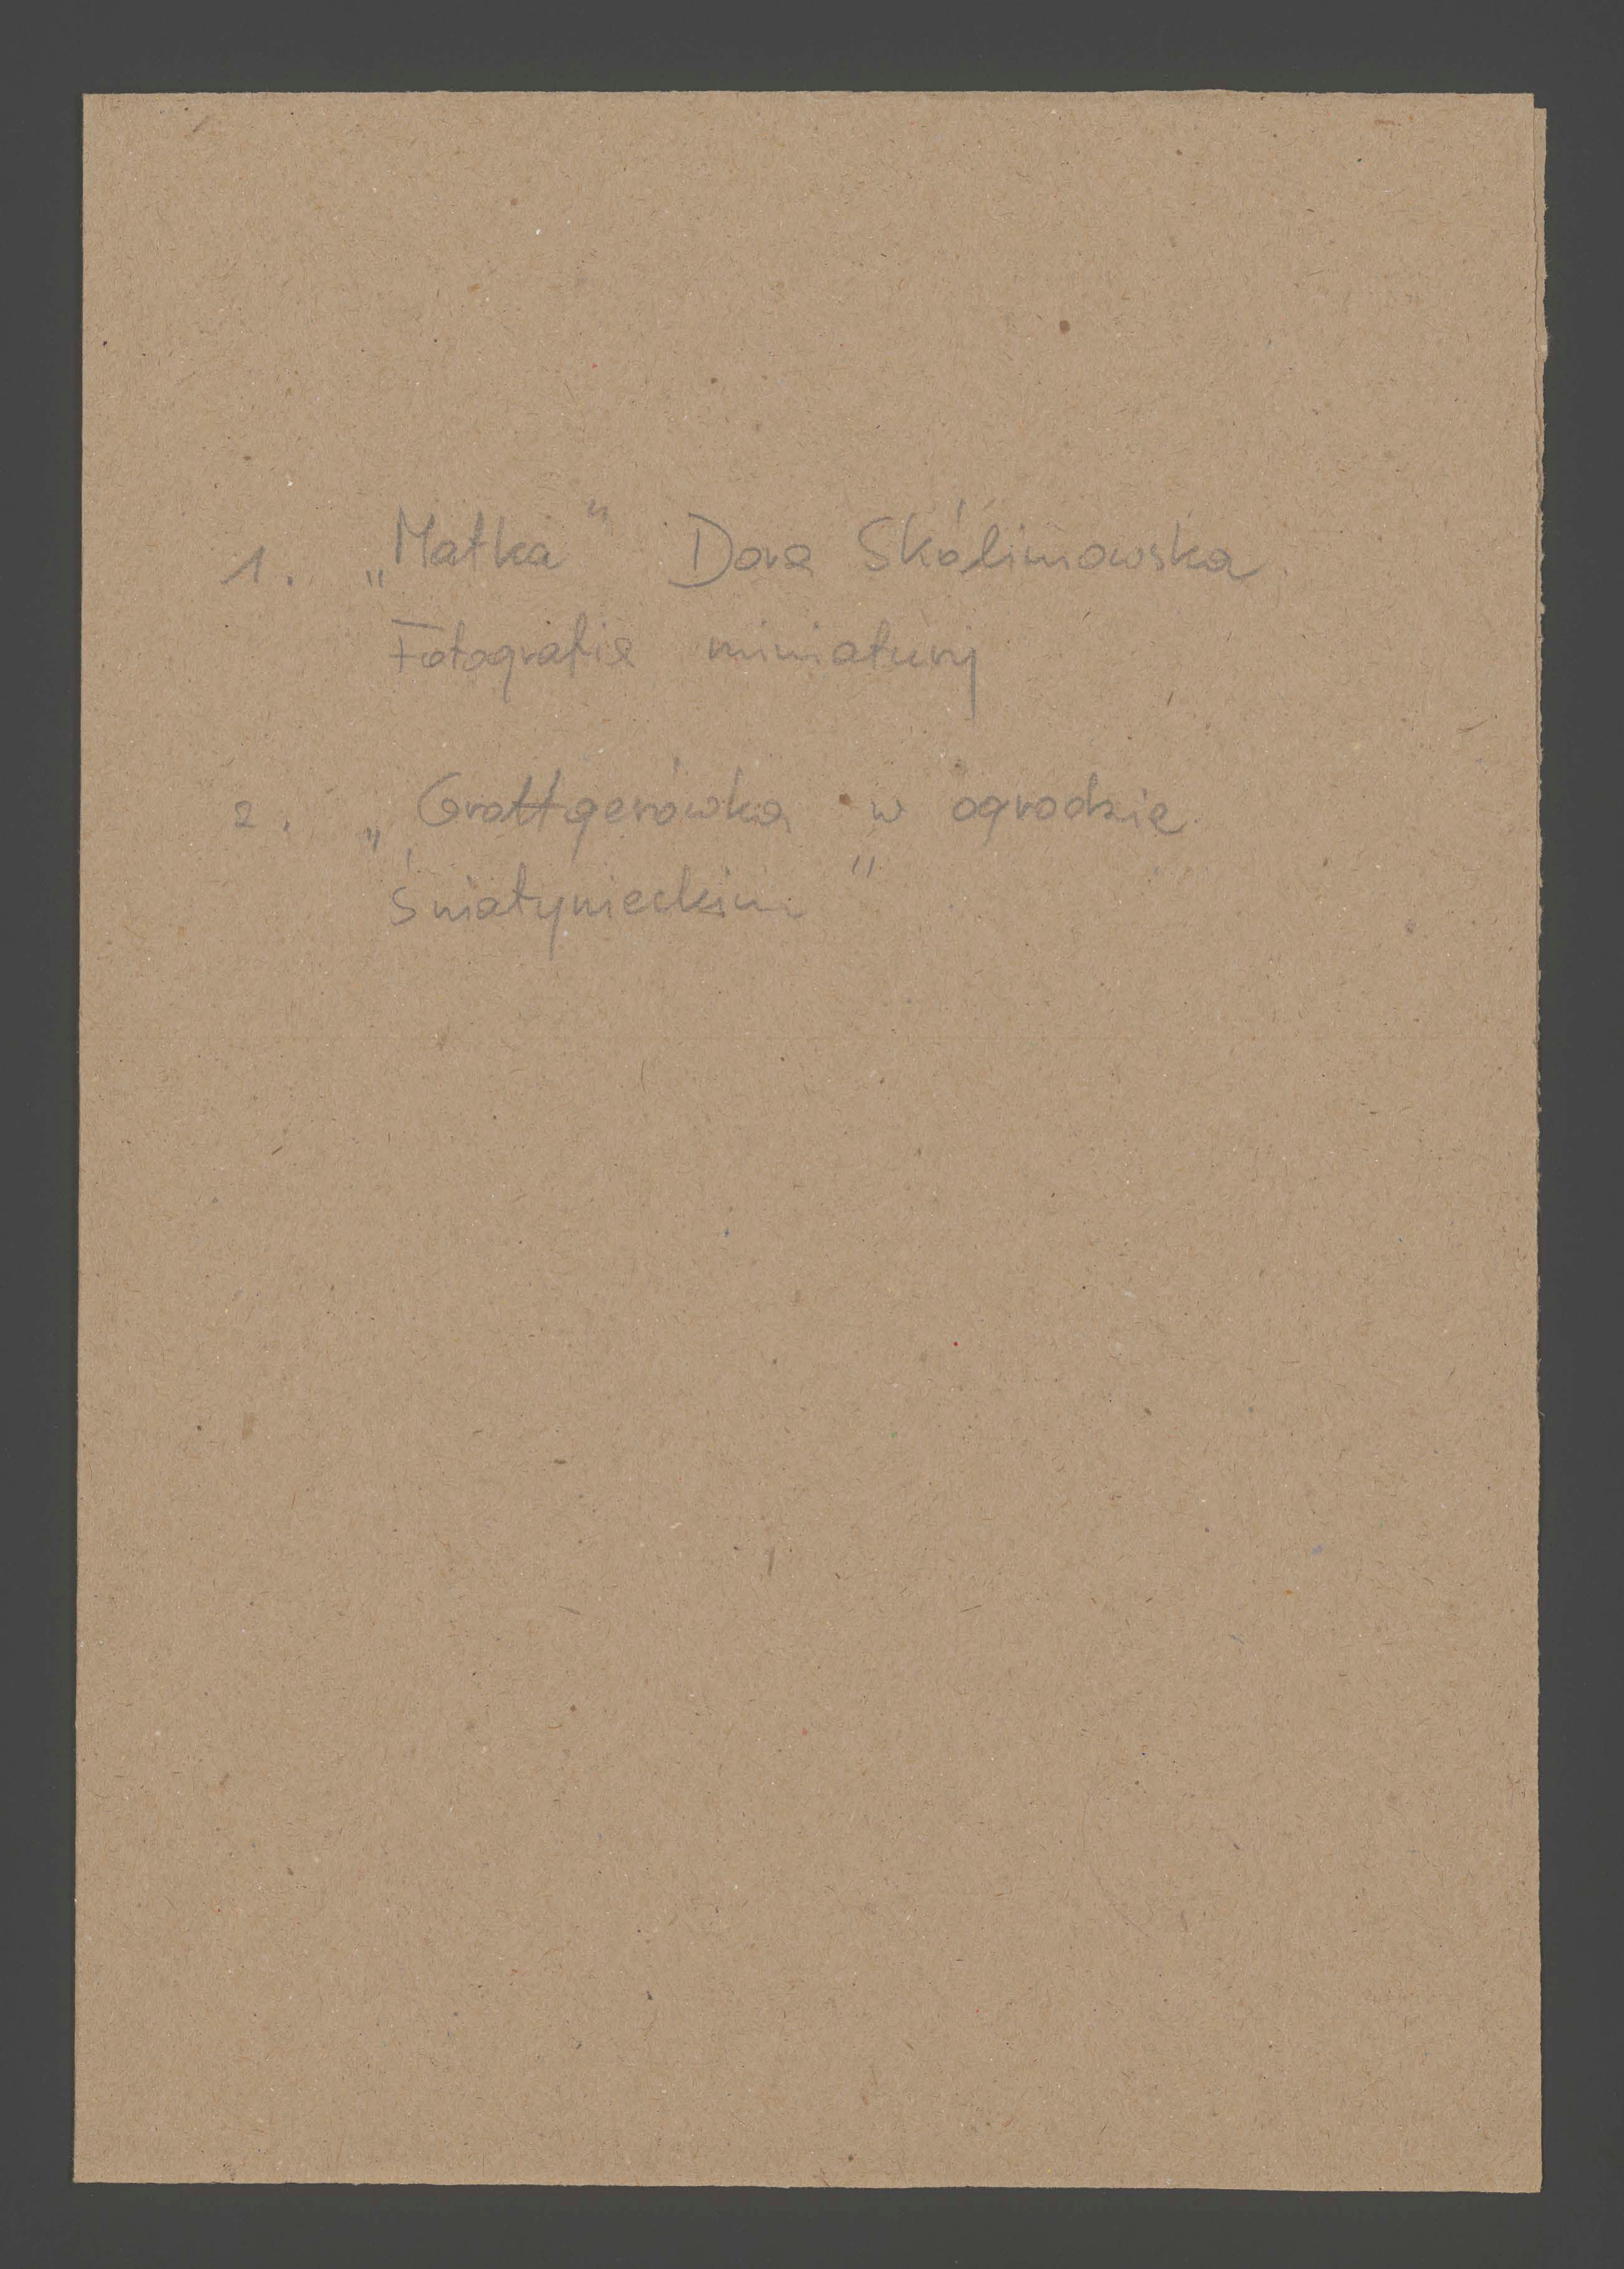 1. „Matka" Dora Skólimowska
Fotografie miniatury
2. „Grottgerówka w ogrodzie
Śniatynieckim"